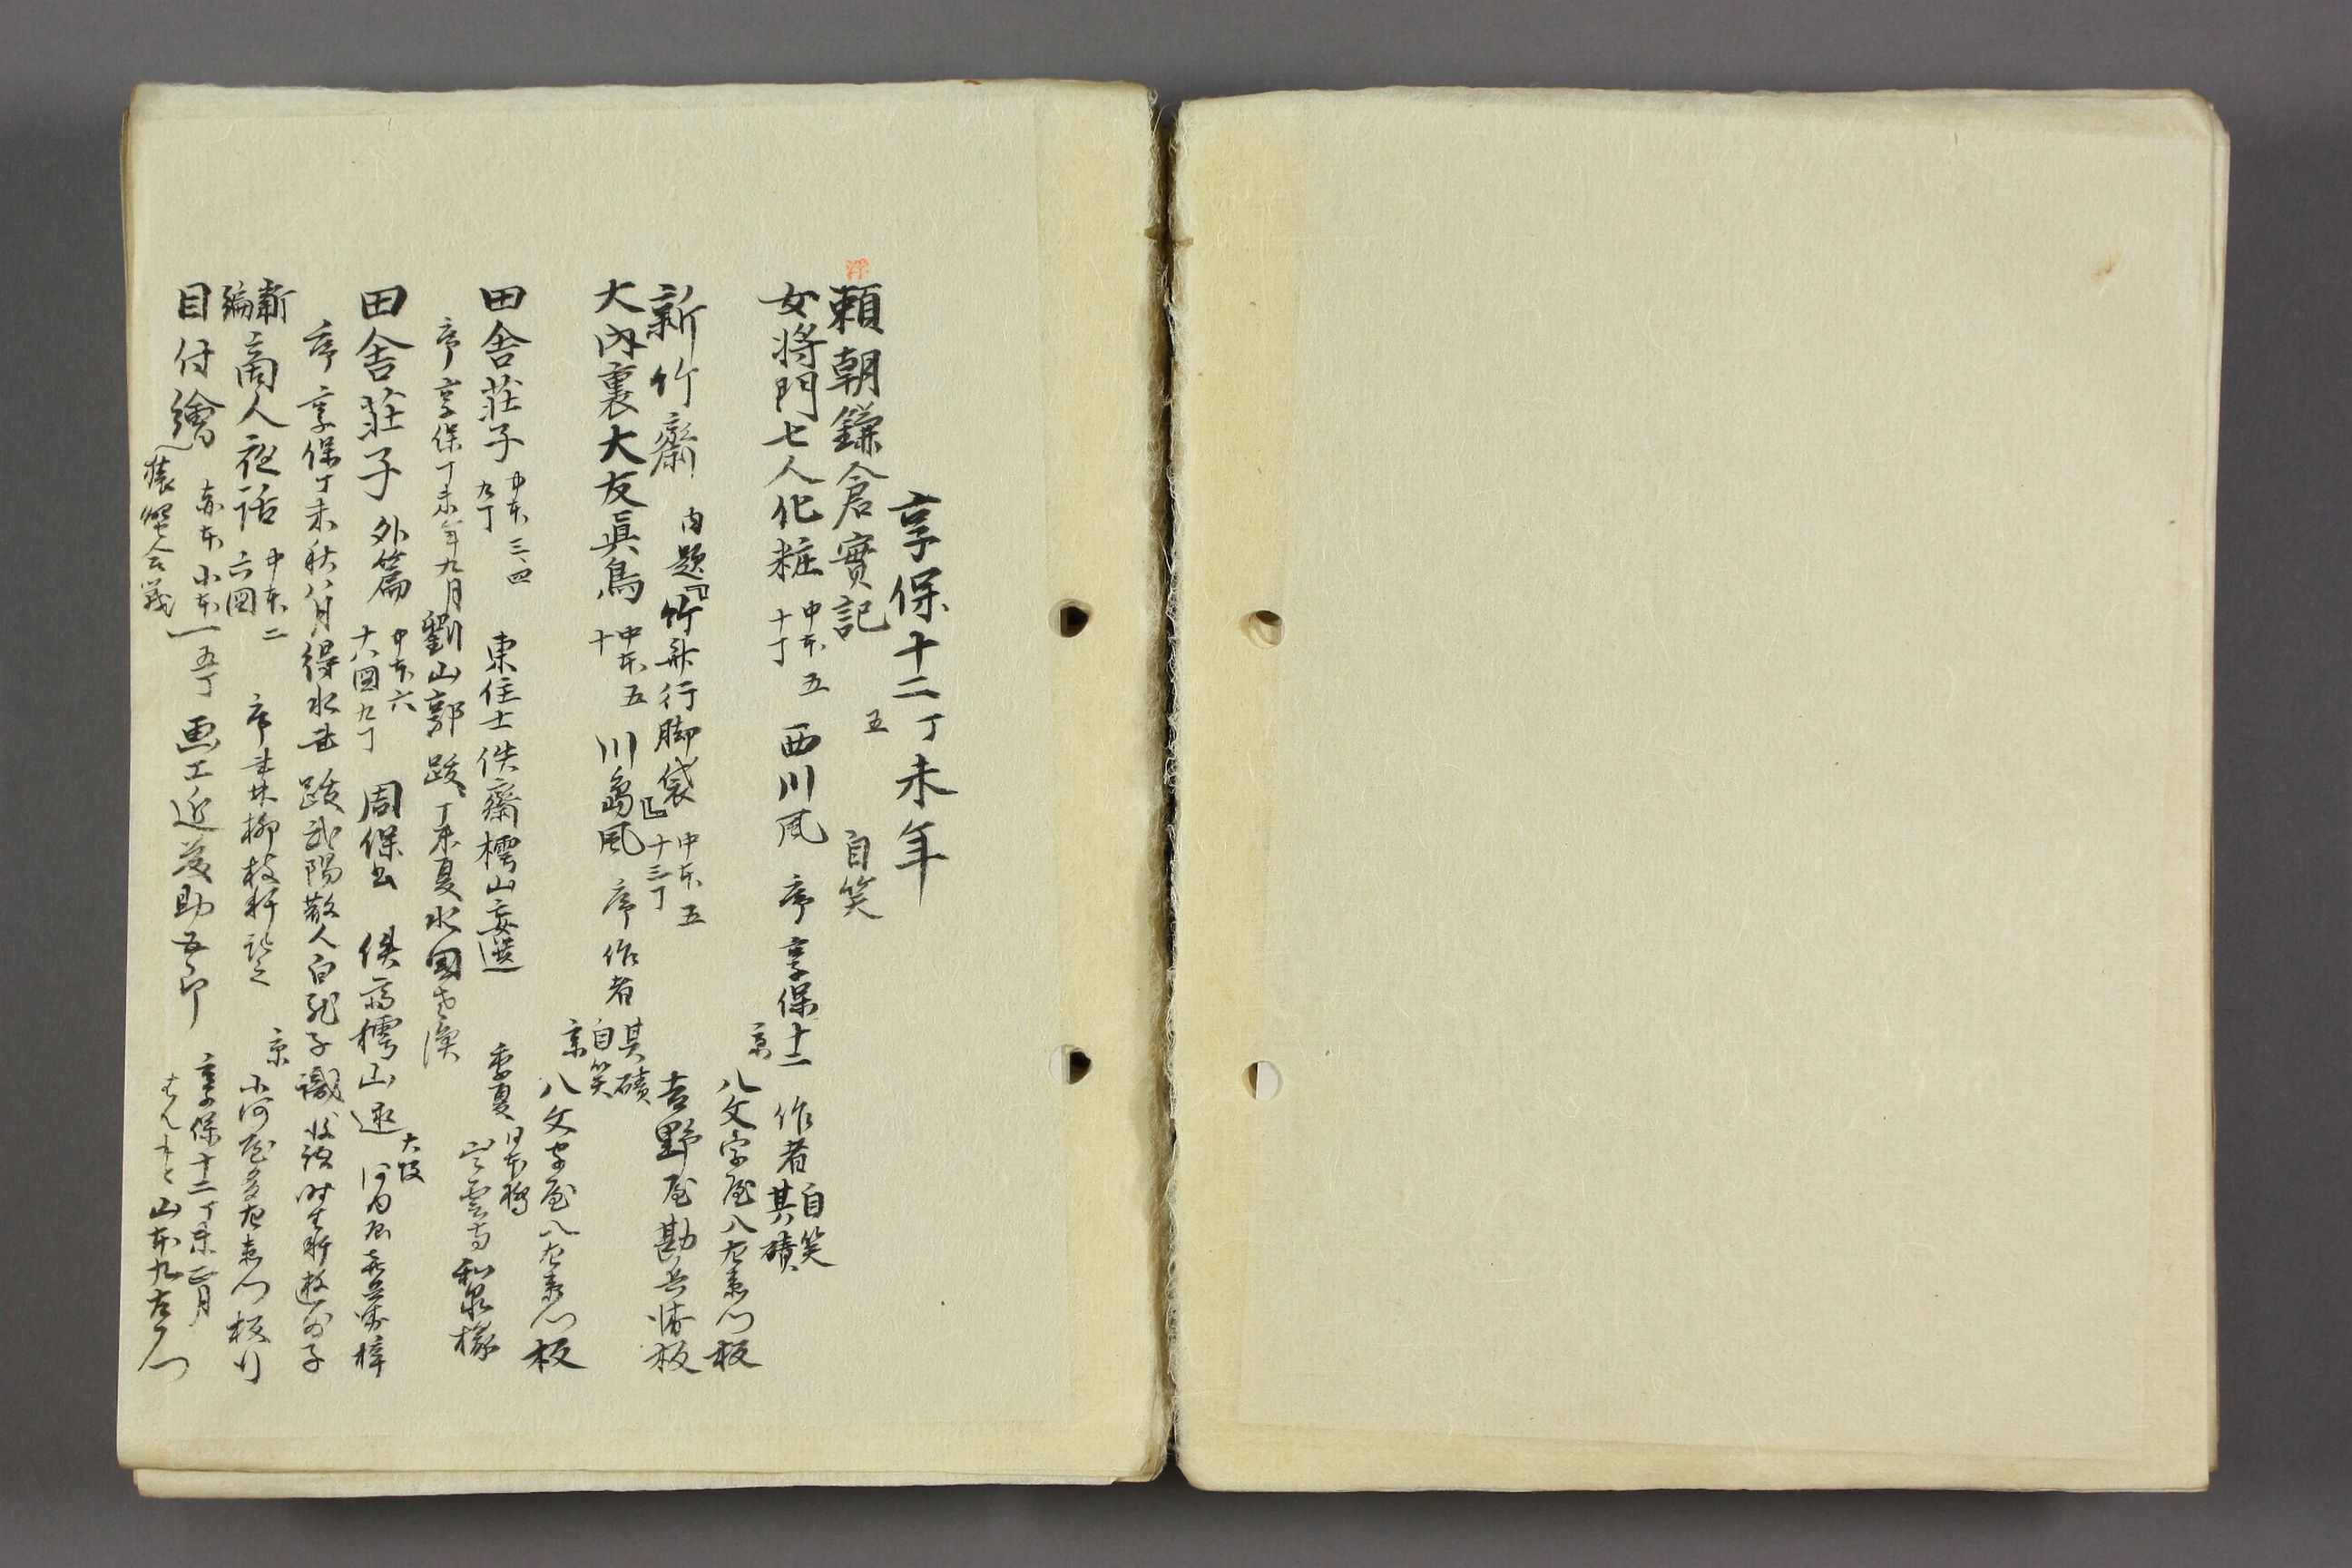 享保十二丁未年
賴朝鎌倉實記 五 自笑
女將門七人化粧 中本五 十丁 西川風 序 享保十二 作者 自笑 其磧
京 八文字屋八左衛門板
新竹齋 内題『竹斎行脚袋』 中本五 十三丁 吉野屋勘兵衛板
大內裏大友眞鳥 中本五 十 川島風 序 作者 其磧 自笑
京 八文字屋八左衛門板
田舎荘子 中本三、四 九丁 東住士 佚齋樗山妄選 季夏 日本橋
序 享保丁未年九月 劉山郭 跋 丁未夏水國 和泉掾
田舎荘子 外篇 中本六 十六図 九丁 周保 佚齋樗山 大坂
序 享保丁未秋八月得水 跋 武陽散人白龍子識
新編 商人夜話 中本二 六図 序 柳枝軒 京 小河屋多左衛門板行
目付繪 赤本 小本一 五丁 画工近藤助五郎 享保十二丁未正月
猿蟹合戦 はんもと 山本九左衛門